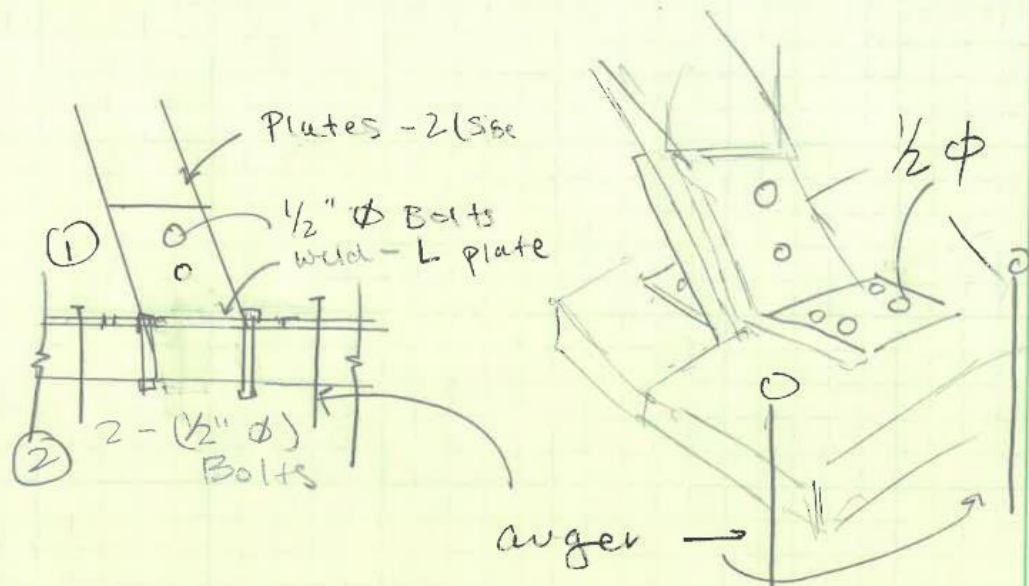 Plates - 2 (Side
1/2" Ø Bolts
weld - L plate
①
②
2 - (1/2" Ø)
Bolts
1/2 Ø
auger